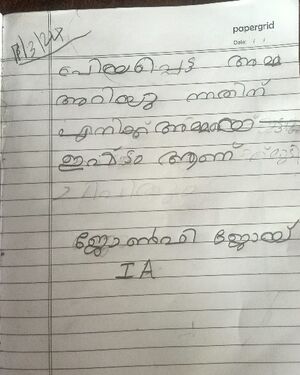 papergrid
Date: / /
പ്രിയപ്പെട്ട അമ്മ
അറിയു ന്നതിന്
എനിക്ക് അമ്മയെ
ഇഷ്ടം ആണ്
ജോൺവി ജോയ്
I A